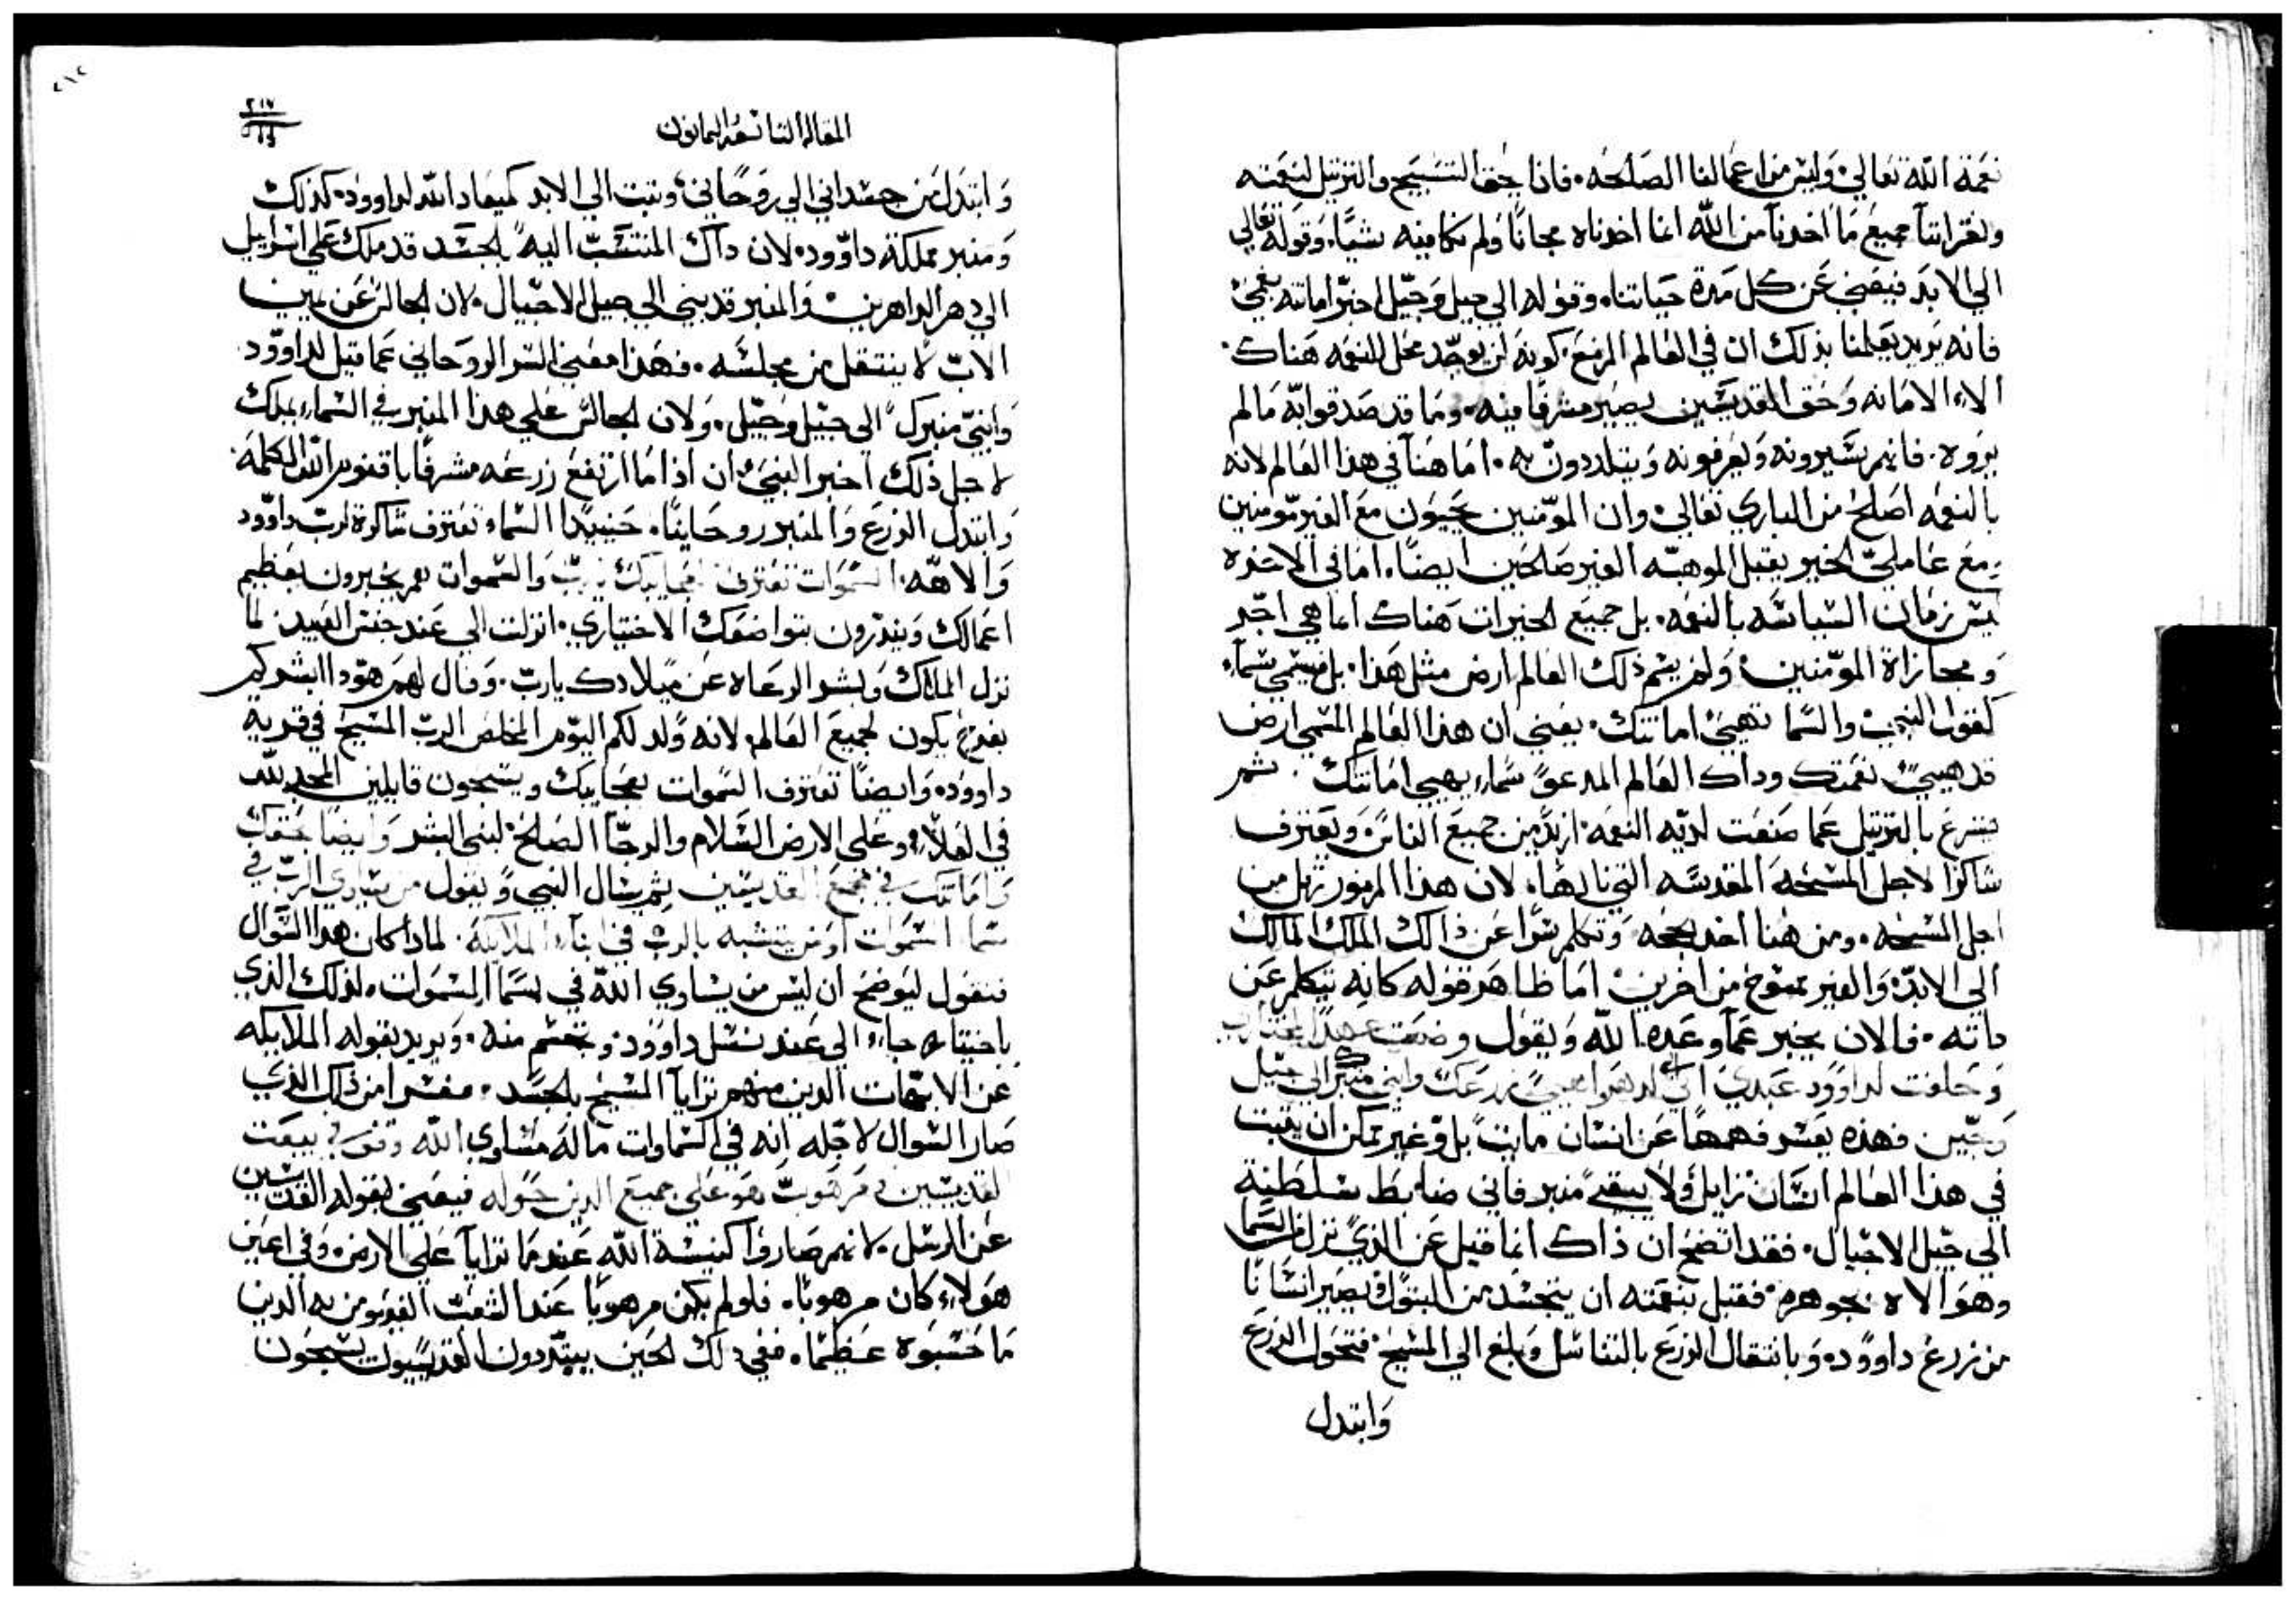 نعمة الله تعالي وليس من اعمالنا الصالحه. فاذا بحق التسبيح والترتيل لنعمته
جميع ما اخدنا من الله انما اخدناه مجانًا ولم نكافيه بشيًا. وقوله تعالي
الي الابد فيعني عن كل مدة حياتنا. وقوله الي جيل وجيل اخبر امانته بغمي
فانه يريد يعلمنا بذلك ان في العالم المزمع كونه لن يوجد محل للنعمه هناك.
الا الامانه وحق القديسين يصير مشرفًا فيه. وما قد صدقوا به مالم
يروه. فانهم يشيرونه ويعرفونه ويتلددون به. اما هنا في هذا العالم لانه
بالنعمه اصلح من الباري تعالي وان المومنين يحيون مع الغير مومنين
مع عاملي الخير يقبل الموهبه الغير صالحين ايضًا. اما في الاخره
ليس زمان السياسه بالنعمه. بل جميع الخيرات هناك انما هي اجر
ومجازاة المومنين. ولن يسم ذلك العالم ارض مثل هذا. بل يسمي سماء
كقول النبي والسما تهيي امانتك. يعني ان هذا العالم المسمي ارض
قد هييت نعمتك وداك العالم المدعو سماء يهيي امانتك. ثم
يسرع بالترتيل عما صنعت لديه النعمه ازيد من جميع الناس ويعترف
شاكرًا لاجل المسيحه المقدسه التي نالها. لان هذا المزمور رتل من
اجل المسيحه. ومن هنا اخد الحجه وتكلم سرًا عن ذالك الملك المالك
الي الابد والغير ممسوح من اخرين اما ظاهر قوله كانه يتكلم عن
داته. فالان يخبر عما وعده الله ويقول وضعت عهدًا لمختاري
وحلفت لداوود عبدي اني لدهر اهيي زرعك وابني منبرك الي جيل
وجيل. فهذه يعسر فهمها عن انسان مايت بل وغير ممكن ان يثبت
في هذا العالم انسان زايل ولا يبقي منبر فاني ضابط سلطنة
الي جيل الاجيال. فقد اتضح ان ذاك انما قيل عن الذي نزل من السما
وهو الاه بجوهره. فقبل بنعمته ان يتجسد من البتول ويصير انسانًا
من زرع داوود. وبانتقال الزرع بالتناسل وبلغ الي المسيح. فتحول الزرع
وابتدل
٢١٧
المقالة التاسعة والتمانون
وابتدل من جسداني الي روحاني. وتبت الي الابد كميعاد الله لداوود. كذلك
ومنبر مملكة داوود. لان داك المنتسب اليه بالجسد قد ملك علي اسراييل
الي دهر الداهرين والمنبر قد بني الي جيل الاجيال. لان الجالس عن يمين
الاب لا ينتقل من مجلسه. فهذا معني السر الروحاني عما قيل لداوود
وابني منبرك الي جيل وجيل. ولان الجالس علي هذا المنبر في السماء يملك
لاجل ذلك اخبر النبي ان اذا ما ارتفع زرعه مشرفًا باقنوم الله الكلمة
وابتدل الزرع والمنبر روحانيًا. حينيدًا السماء تعترف شاكرة لرب داوود
والاهه. السموات تعترف بعجايبك يا رب والسموات هم يخبرون بعظيم
اعمالك وينذرون بتواضعك الاختياري. انزلت الي عند جنس العبيد. لما
نزل الملاك وبشر الرعاه عن ميلادك يارب. وقال لهم هودا ابشركم
بفرح يكون لجميع العالم. لانه ولد لكم اليوم المخلص الرب المسيح في قرية
داوود. وايضًا تعترف السموات بعجايبك ويسبحون قايلين المجد لله
في العلا وعلي الارض السلام والرجا الصالح لبني البشر وايضًا بحقك
وامانتك في مجمع القديسين ثم يسال النبي ويقول من يساوي الرب في
سما السموات او من يتشبه بالرب في ابناء الملايكة. لماذا كان هذا السوال
فنقول ليوضح ان ليس من يساوي الله في سما السموات. لذلك الذي
باختياره جاء الي عند نسل داوود وتجسم منه. ويريد بقوله الملايكه
عن الابهات الدين منهم ترايا المسيح بالجسد. مفسرًا من ذلك الذي
صار السوال لاجله انه في السماوات ما له مساوي الله وقوي في بيعت
القديسين ومرهوب هو علي جميع الدين حوله فيعني بقوله القديسين
عن الرسل. لانهم صاروا كنيسة الله عندما ترايا علي الارض. وفي اعين
هولاء كان مرهوبًا. فلو لم يكن مرهوبًا عند الشعب الغير مومن به الدين
ما حسبوه عظيمًا. ففي ذلك الحين يبتدرون القديسيون يسبحون